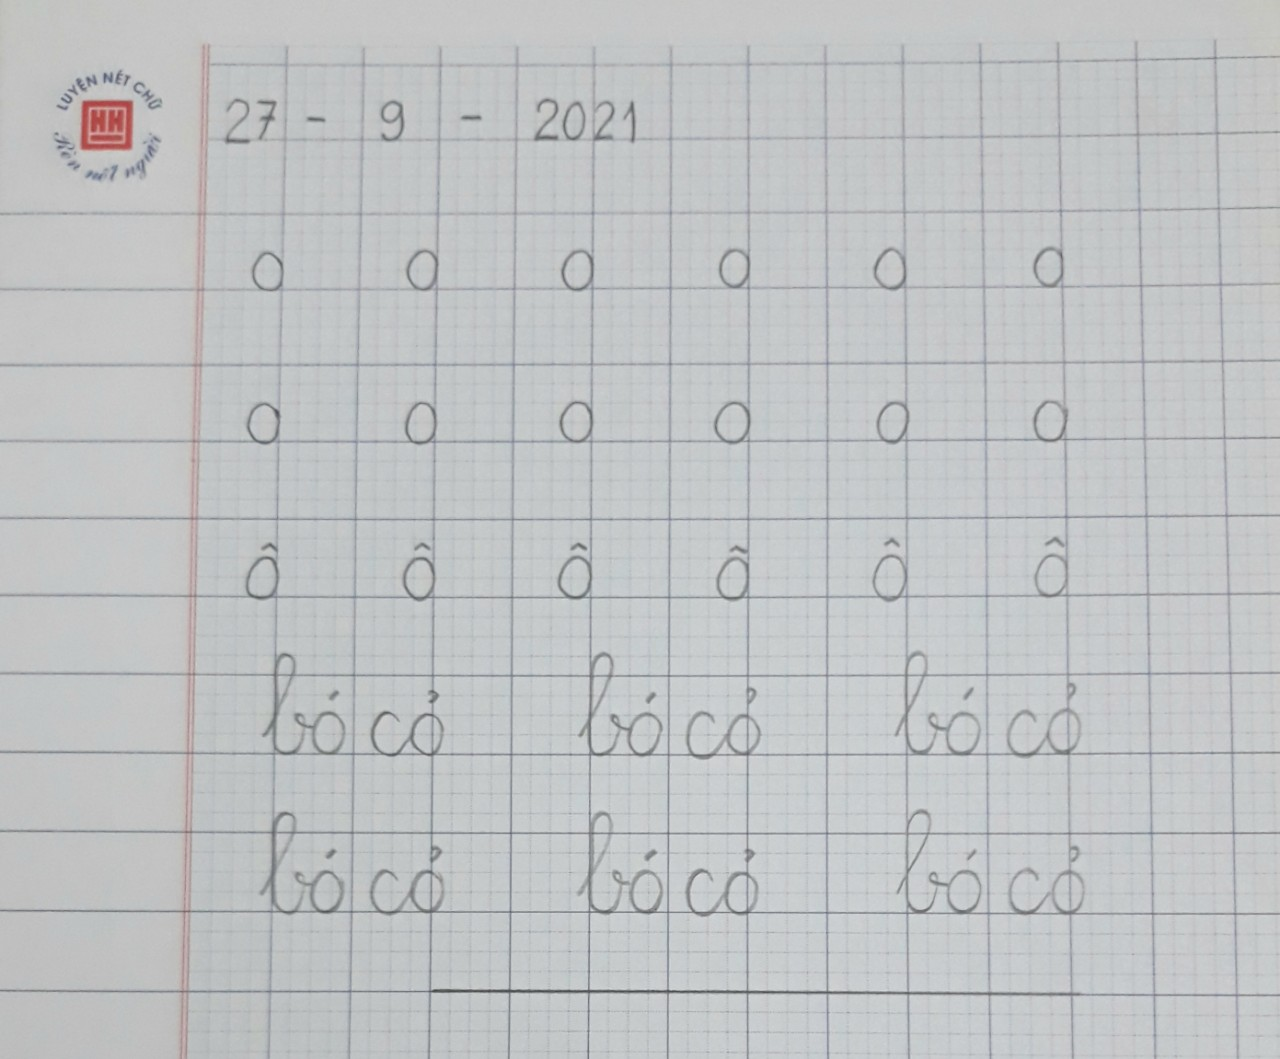 LUYỆN NÉT CHỮ
Rèn nết người
27 - 9 - 2021
o o o o o o
o o o o o o
ô ô ô ô ô ô
bó cỏ bó cỏ bó cỏ
bó cỏ bó cỏ bó cỏ